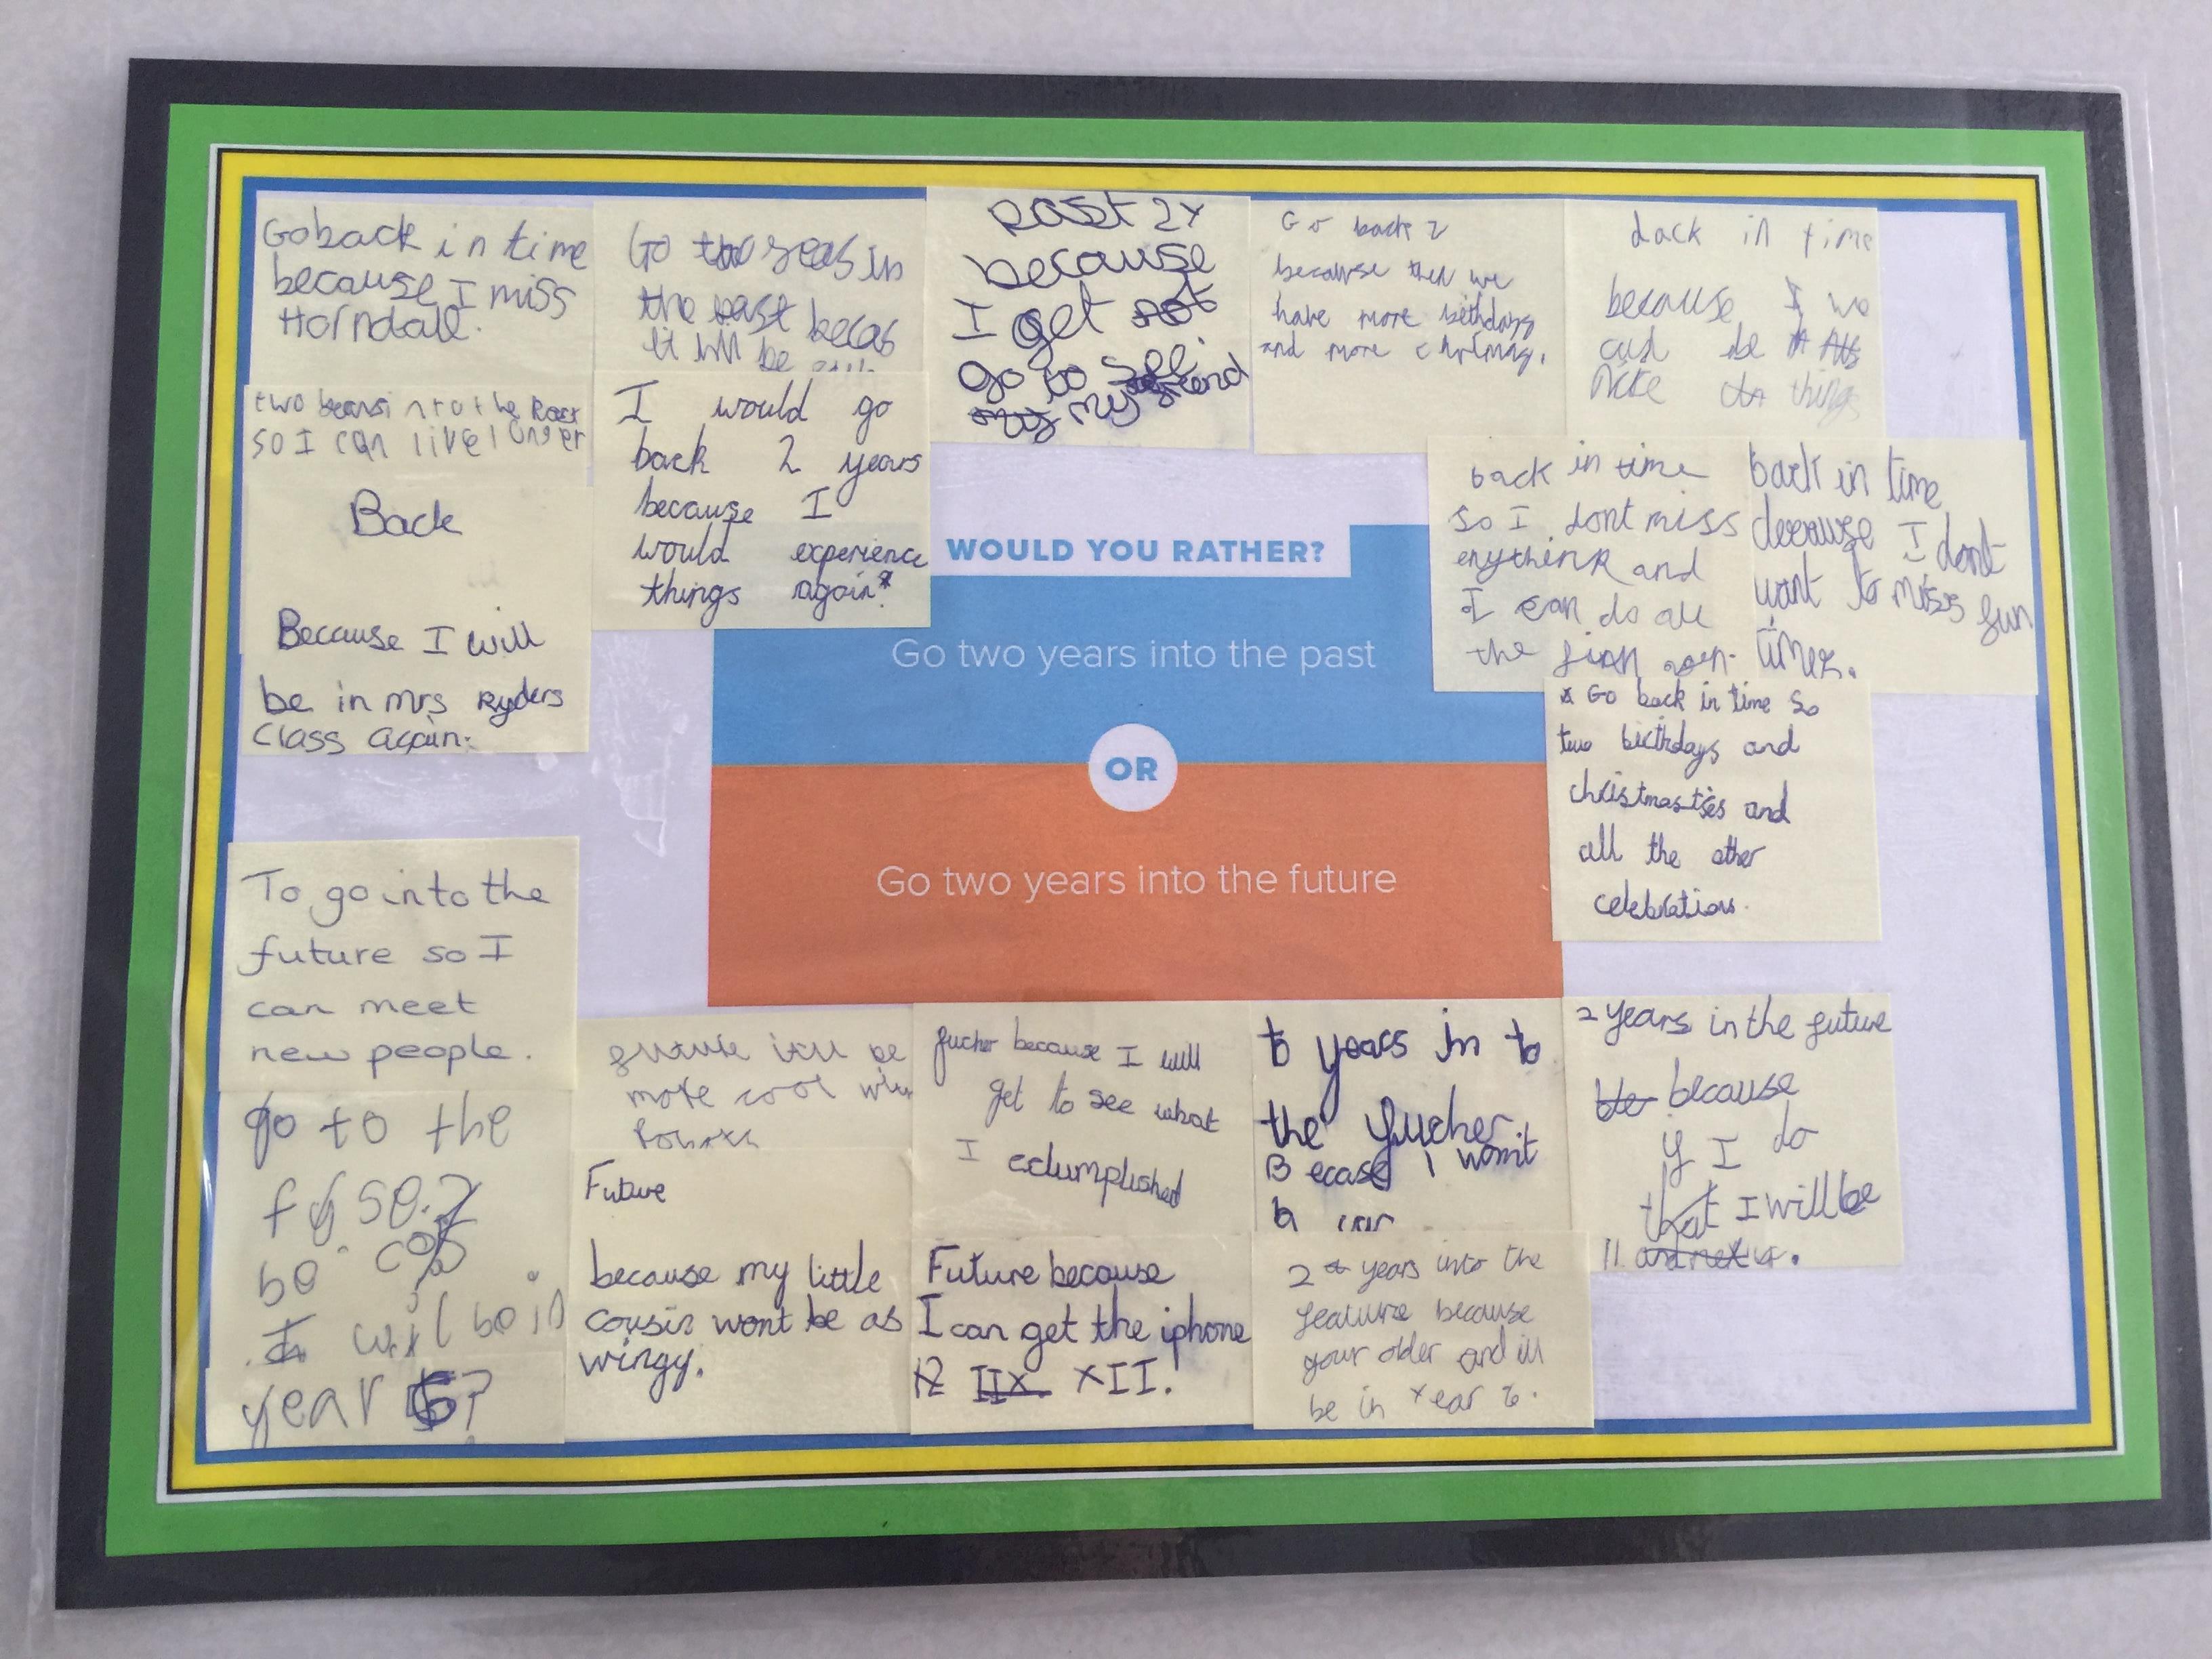 Go back in time
because I miss
Horndall.
two
so I can live longer
Back
Because I will
be in mrs Ryders
Class again.
Go years in
the past becas
it will be
I would go
back 2 years
because I
would experience
things again
past 2y
because
I get
go to
my
Go back 2
because then we
have more bithdays
and more
back in time
because we
be
things
back in time
so I dont miss
and
I can do all
the
back in time
because I dont
want to miss fun
times.
Go back in time so
two birthdays and
christmastses and
all the other
celebrations.
WOULD YOU RATHER?
Go two years into the past
OR
Go two years into the future
To go into the
future so I
can meet
new people.
go to the
be
will be in
year 6?
be
more cool
Future
because my little
cousin wont be as
wingy.
fucher because I will
get to see what
I
Future because
I can get the iphone
XII!
to years in to
the fucher
Becase I
2 years into the
feature because
your older and ill
be in Year 6.
2 years in the future
because
if I do
that I will be
11.